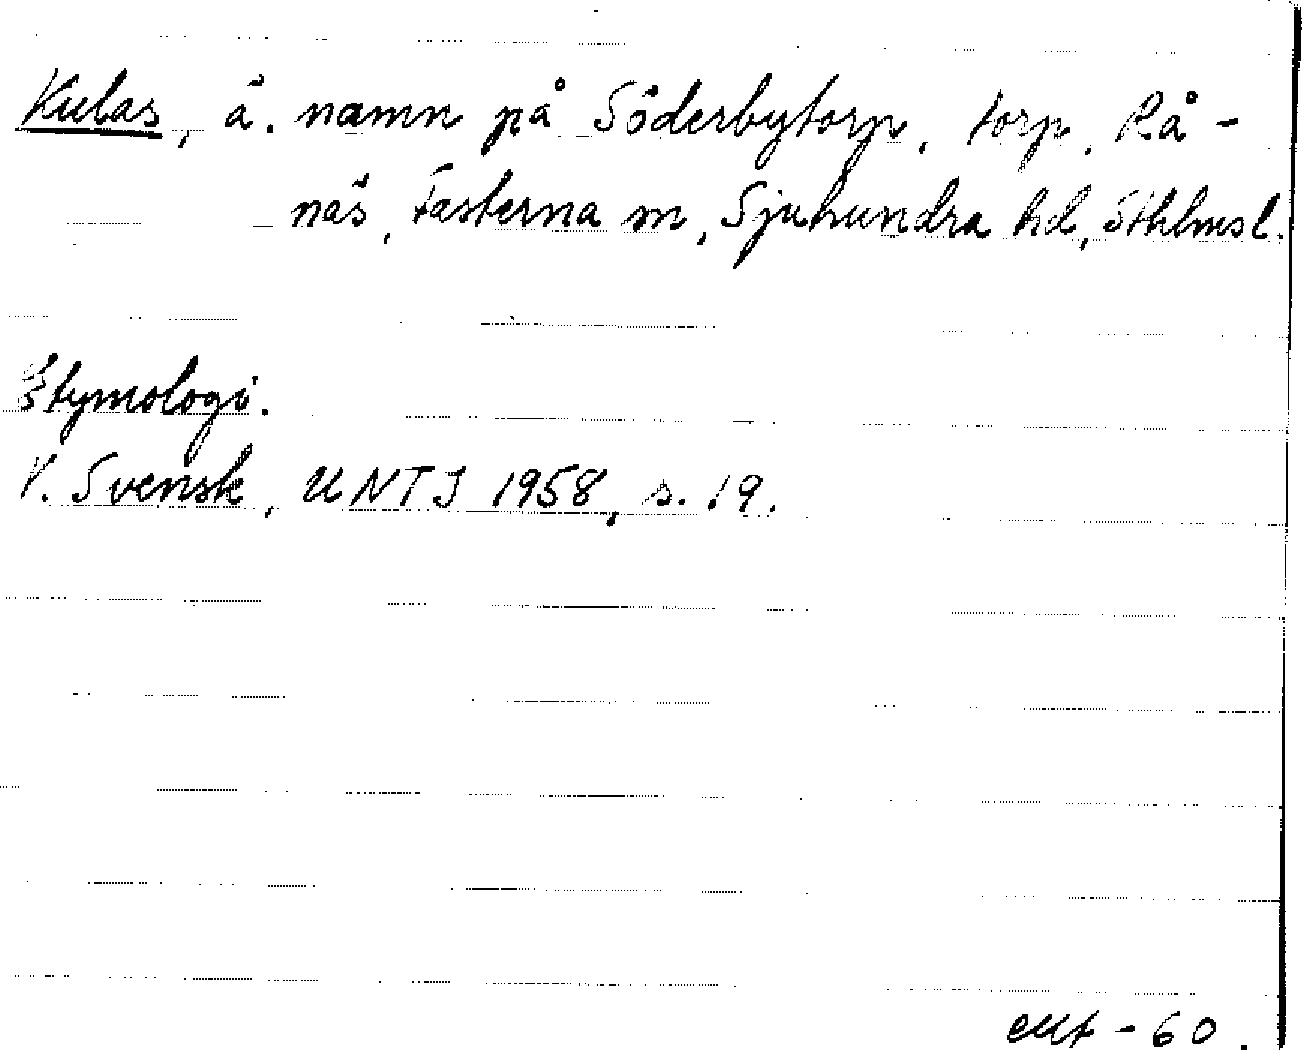 Kulas, ä. namn på Söderbytorp, torp, Rå-
näs, Fasterna sn, Sjuhundra hd, Sthlmsl.
Etymologi.
V. Svensk, UNTJ 1958, s. 19.
-60.